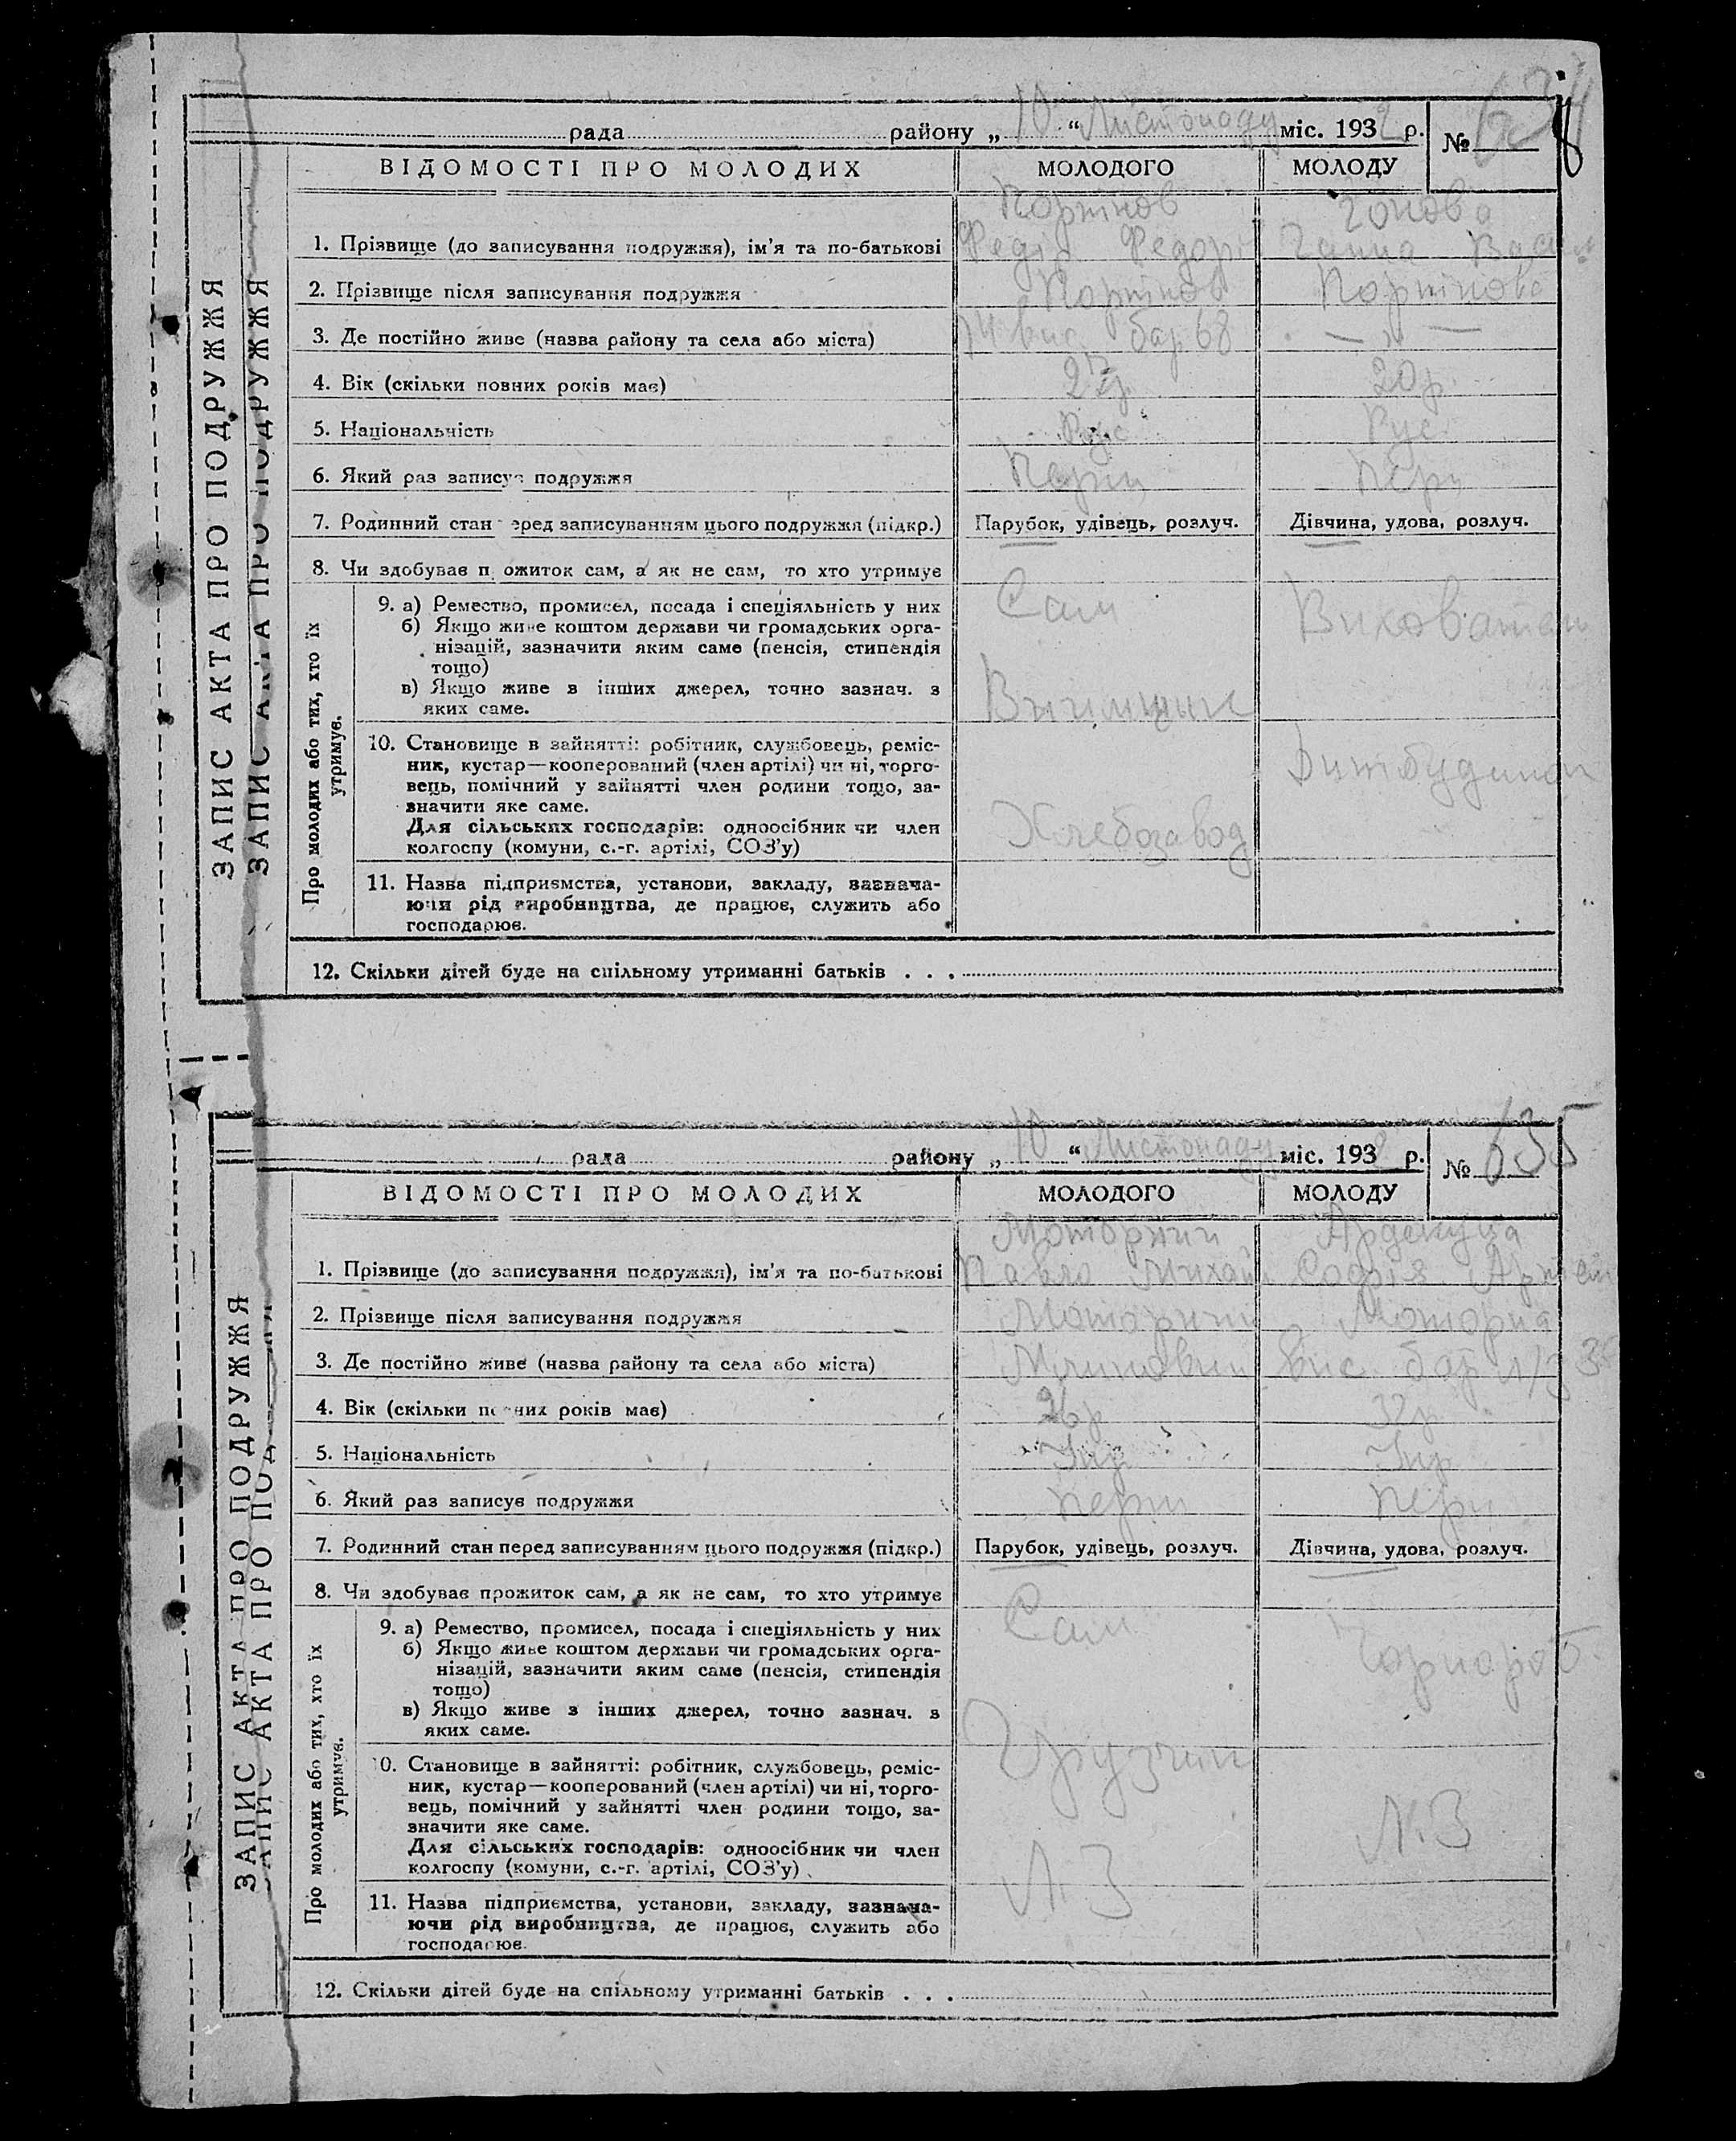 рада району „ 10 “ Листопаду міс. 193 р. № 634
ВІДОМОСТІ ПРО МОЛОДИХ МОЛОДОГО МОЛОДУ
Портнов
1. Прізвище (до записування подружжя), ім'я та по-батькові Федір Федор Ганна Васил
2. Прізвище після записування подружжя Портнов Портнова
3. Де постійно живе (назва району та села або міста) бар 68 — „ —
4. Вік (скільки повних років має) 20 р.
5. Національність Рус Рус
6. Який раз записує подружжя Перш Перш
7. Родинний стан перед записуванням цього подружжя (підкр.) Парубок, удівець, розлуч. Дівчина, удова, розлуч.
8. Чи здобуває прожиток сам, а як не сам, то хто утримує
Сам
Про молодих або тих, хто їх утримує.
9. а) Ремество, промисел, посада і спеціяльність у них
б) Якщо живе коштом держави чи громадських орга-
нізацій, зазначити яким саме (пенсія, стипендія
тощо)
в) Якщо живе з інших джерел, точно зазнач. з
яких саме.
10. Становище в зайнятті: робітник, службовець, реміс-
ник, кустар—кооперований (член артілі) чи ні, торго-
вець, помічний у зайнятті член родини тощо, за-
значити яке саме.
Для сільських господарів: одноосібник чи член
колгоспу (комуни, с.-г. артілі, СОЗ'у)
Хлебозавод
11. Назва підприємства, установи, закладу, зазнача-
ючи рід виробництва, де працює, служить або
господарює.
12. Скільки дітей буде на спільному утриманні батьків . . .
ЗАПИС АКТА ПРО ПОДРУЖЖЯ
ЗАПИС АКТА ПРО ПОДРУЖЖЯ
рада району „ 10 “ Листопаду міс. 193 р. № 635
ВІДОМОСТІ ПРО МОЛОДИХ МОЛОДОГО МОЛОДУ
Моторний
1. Прізвище (до записування подружжя), ім'я та по-батькові Павло Михайл Софія Артем
2. Прізвище після записування подружжя Моторний Моторна
3. Де постійно живе (назва району та села або міста) вис. бар
4. Вік (скільки повних років має) 32 р
5. Національність Укр Укр
6. Який раз записує подружжя Перш Перш
7. Родинний стан перед записуванням цього подружжя (підкр.) Парубок, удівець, розлуч. Дівчина, удова, розлуч.
8. Чи здобуває прожиток сам, а як не сам, то хто утримує
Сам Чорнороб
Про молодих або тих, хто їх утримує.
9. а) Ремество, промисел, посада і спеціяльність у них
б) Якщо живе коштом держави чи громадських орга-
нізацій, зазначити яким саме (пенсія, стипендія
тощо)
в) Якщо живе з інших джерел, точно зазнач. з
яких саме.
Грузчик
10. Становище в зайнятті: робітник, службовець, реміс-
ник, кустар—кооперований (член артілі) чи ні, торго-
вець, помічний у зайнятті член родини тощо, за-
значити яке саме.
Для сільських господарів: одноосібник чи член
колгоспу (комуни, с.-г. артілі, СОЗ'у)
Л.З Л.З
11. Назва підприємства, установи, закладу, зазнача-
ючи рід виробництва, де працює, служить або
господарює.
12. Скільки дітей буде на спільному утриманні батьків . . .
ЗАПИС АКТА ПРО ПОДРУЖЖЯ
ЗАПИС АКТА ПРО ПОД